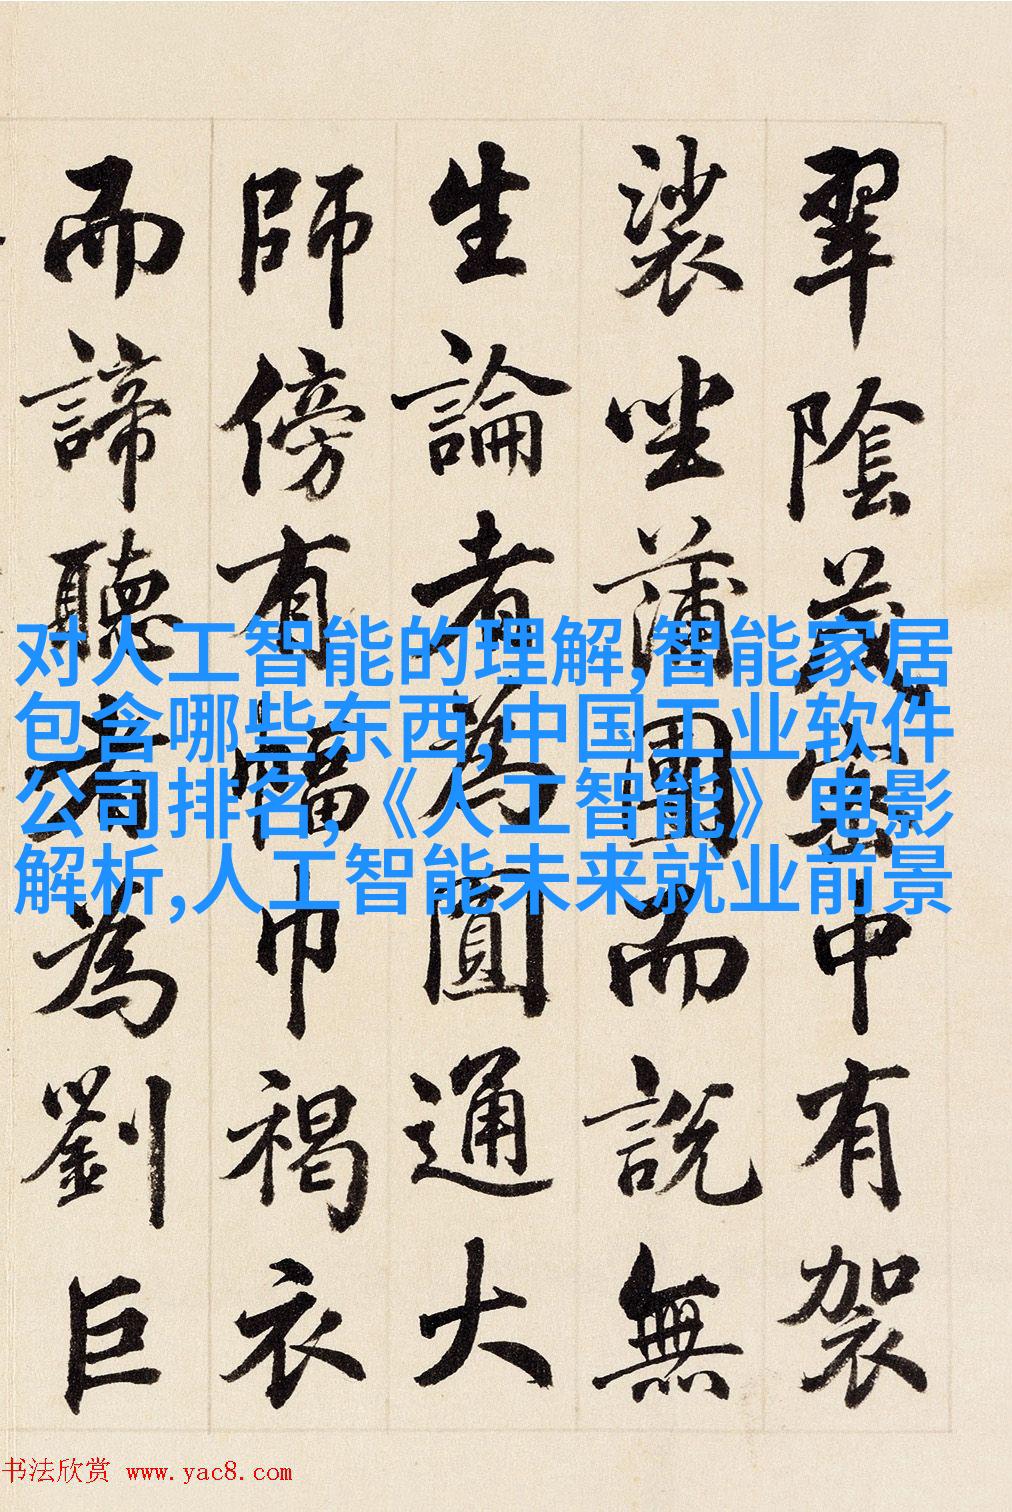 翠陰茂密中有袈
裟坐蒲團而說無
生論者為圓通大
師傍有幅巾褐衣
而諦聽者為劉巨
对人工智能的理解,智能家居
包含哪些东西,中国工业软件
公司排名,《人工智能》电影
解析,人工智能未来就业前景
书法欣赏 www.yac8.com